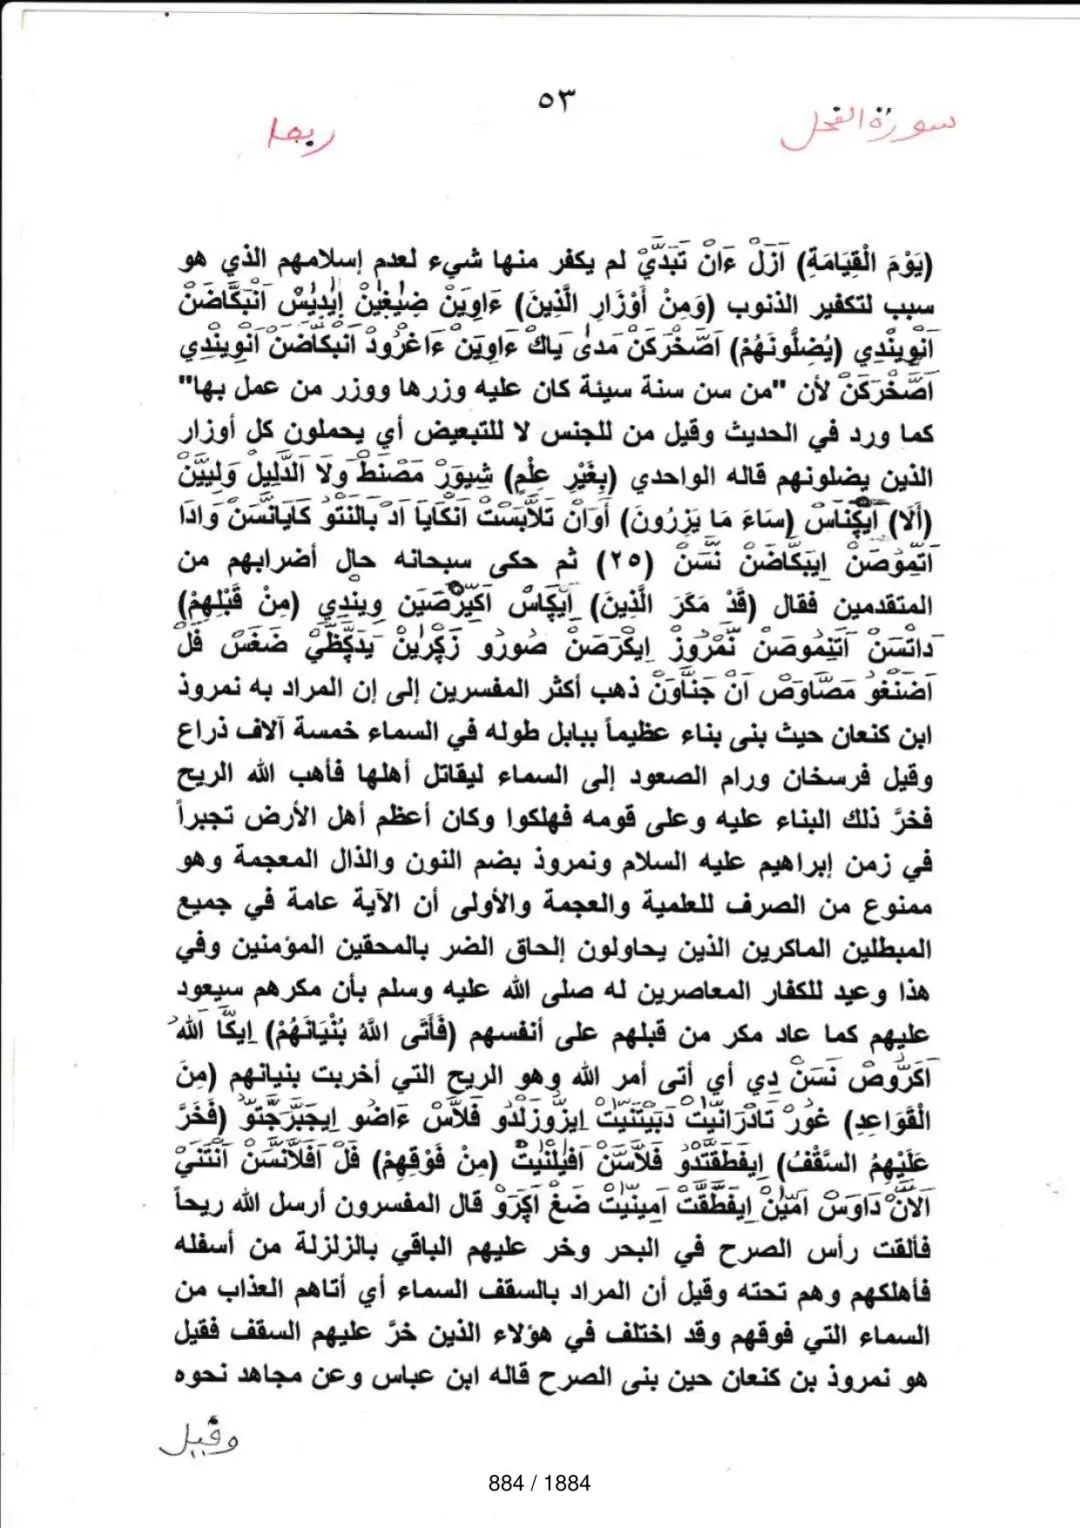 ٥٣
سورة النحل
ربما
(يَوْمَ الْقِيَامَةِ) آزَلْ ءَانْ تَبَدِّيْ لم يكفر منها شيء لعدم إسلامهم الذي هو
سبب لتكفير الذنوب (وَمِنْ أَوْزَارِ الَّذِينَ) ءَاوِيَنْ ضِيْغِيْنْ اِيْدِيْسْ اَنْبَكَّاضَنْ
اَنْوِيْنْدِي (يُضِلُّونَهُمْ) اَصَّخْرَكَنْ مَدىٰ يَاكْ ءَاوِيَنْ ءَاغْرُودْ اَنْبَكَاضَنْ اَنْوِيْنْدِي
اَصَّخْرَكَنْ لأن "من سن سنة سيئة كان عليه وزرها ووزر من عمل بها"
كما ورد في الحديث وقيل من للجنس لا للتبعيض أي يحملون كل أوزار
الذين يضلونهم قاله الواحدي (بِغَيْرِ عِلْمٍ) شِيوَرْ مَصْنَطْ وِلَا اَلدَّلِيلْ وَلِيَيَّنْ
(أَلَا) اَيْكِنَاسْ (سَاءَ مَا يَزِرُونَ) أَوَانْ تَلَابَسْتْ اَنْكَايَا اَدْ بَالنَتْو كَايَانَسَنْ وَادَا
اَتِمُوصَنْ اِيَبَكَاضَنْ نَسَنْ (٢٥) ثم حكى سبحانه حال أضرابهم من
المتقدمين فقال (قَدْ مَكَرَ الَّذِينَ) اَيْكَاسْ اَكِيْرَصَيَن وِيِنْدِي (مِنْ قَبْلِهِمْ)
دَاتْسَنْ اَتَيْمُوصَنْ نَّمْرُوزْ اِيكْرَصَنْ صُورُو زَكْرِيْنْ يَدَكَظَّيْ ضَغَسْ فَلْ
اَضَنْغُو مَصَّاوَصْ اَنْ جَنَّاوَنْ ذهب أكثر المفسرين إلى إن المراد به نمروذ
ابن كنعان حيث بنى بناء عظيماً ببابل طوله في السماء خمسة آلاف ذراع
وقيل فرسخان ورام الصعود إلى السماء ليقاتل أهلها فأهب الله الريح
فخرَّ ذلك البناء عليه وعلى قومه فهلكوا وكان أعظم أهل الأرض تجبراً
في زمن إبراهيم عليه السلام ونمروذ بضم النون والذال المعجمة وهو
ممنوع من الصرف للعلمية والعجمة والأولى أن الآية عامة في جميع
المبطلين الماكرين الذين يحاولون إلحاق الضر بالمحقين المؤمنين وفي
هذا وعيد للكفار المعاصرين له صلى الله عليه وسلم بأن مكرهم سيعود
عليهم كما عاد مكر من قبلهم على أنفسهم (فَأَتَى اللَّهُ بُنْيَانَهُمْ) اِيكَّا اَللهُ
اَكَرُّوصْ نَسَنْ دِي أي أتى أمر الله وهو الريح التي أخربت بنيانهم (مِنَ
الْقَوَاعِدِ) غُورْ تَادَرَانَيْتْ دَبَيْتَنَيْتْ اِيزُّوزَلْدُو فَلَاسْ ءَاضُو اِيجَبَّرَجَّتوْ (فَخَرَّ
عَلَيْهِمُ السَّقْفُ) اِيفَطَقَتَدُو فَلَاسَنْ اَفَيْلَنَيتْ (مِنْ فَوْقِهِمْ) فَلْ اَفَلَانَّسَنْ اَنْتَنَيْ
اَلَانْ دَاوَسْ اَمَّيَنْ اِيفَطَّقَتْ اَمِينَيْتْ ضَغْ اَكَرَوْ قال المفسرون أرسل الله ريحاً
فألقت رأس الصرح في البحر وخر عليهم الباقي بالزلزلة من أسفله
فأهلكهم وهم تحته وقيل أن المراد بالسقف السماء أي أتاهم العذاب من
السماء التي فوقهم وقد اختلف في هؤلاء الذين خرَّ عليهم السقف فقيل
هو نمروذ بن كنعان حين بنى الصرح قاله ابن عباس وعن مجاهد نحوه
وقيل
884 / 1884